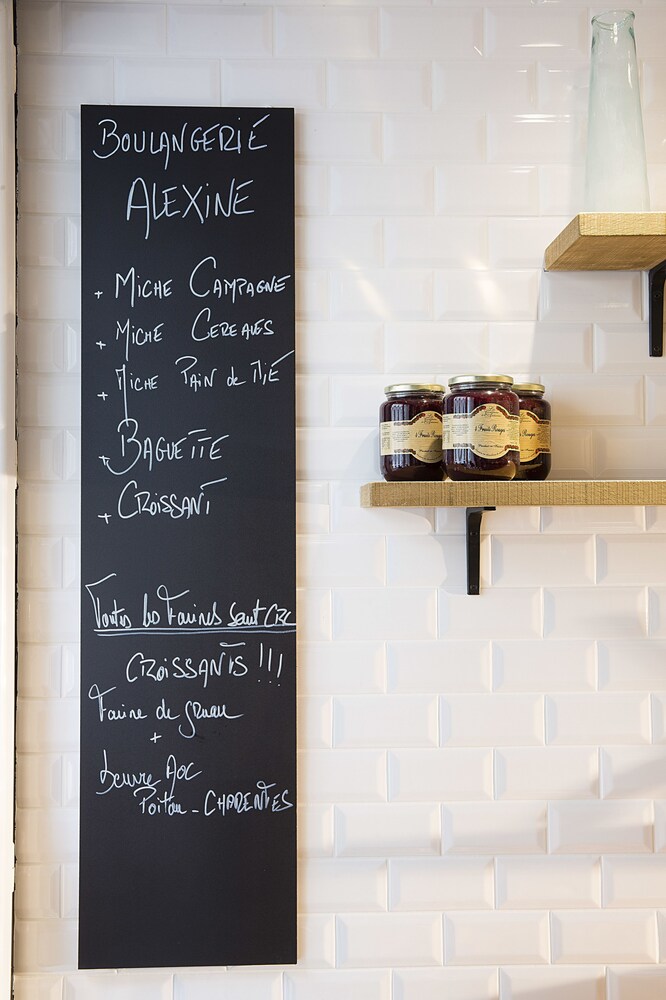 BOULANGERIE
ALEXINE
+ MICHE CAMPAGNE
+ MICHE CEREALES
+ MICHE PAIN de MIE
+ BAGUETTE
+ CROISSANT
Toutes les Farines sont CRC
CROISSANTS !!!
Farine de gruau
+
beurre AOC
Poitou - CHARENTES
4 Fruits Rouges